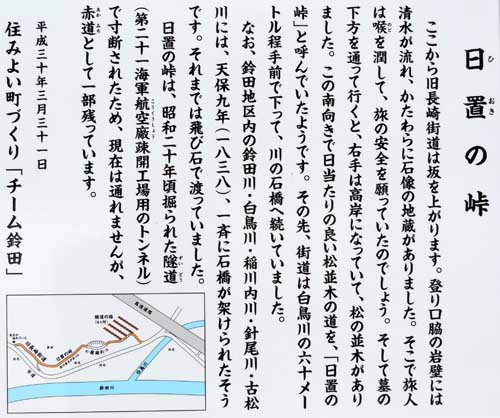 日置の峠
ひ おき
ここから旧長崎街道は坂を上がります。登り口脇の岩壁には
清水が流れ、かたわらに石像の地蔵がありました。そこで旅人
は喉を潤して、旅の安全を願っていたのでしょう。そして墓の
下方を通って行くと、右手は高岸になっていて、松の並木があり
ました。この南向きで日当たりの良い松並木の道を、「日置の
峠」と呼んでいたようです。その先、街道は白鳥川の六十メー
トル程手前で下って、川の石橋へ続いていました。
なお、鈴田地区内の鈴田川・白鳥川・稲川内川・針尾川・古松
川には、天保九年(一八三八)、一斉に石橋が架けられたそう
です。それまでは飛び石で渡っていました。
日置の峠は、昭和二十年頃掘られた隧道
ずいどう
(第二十一海軍航空廠疎開工場用のトンネル)
で寸断されたため、現在は通れませんが、
赤道として一部残っています。
あか みち
平成三十年三月三十一日
住みよい町づくり「チーム鈴田」
鈴田川